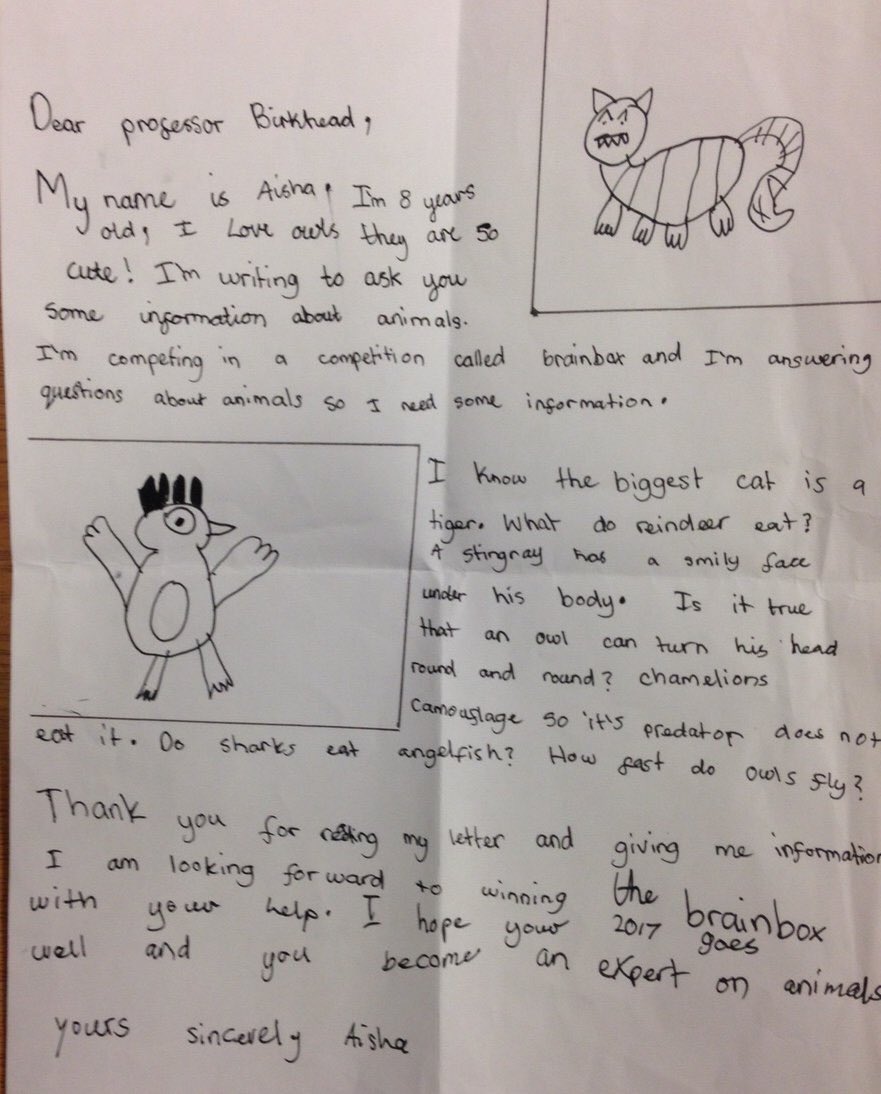 Dear professor Birkhead,
My name is Aisha, I'm 8 years
old, I Love owls they are so
cute! I'm writing to ask you
some information about animals.
I'm competing in a competition called brainbox and I'm answering
questions about animals so I need some information.
I know the biggest cat is a
tiger. What do reindeer eat?
A stingray has a smily face
under his body. Is it true
that an owl can turn his head
round and round? chamelions
camouflage so it's predator does not
eat it. Do sharks eat angelfish? How fast do owls fly?
Thank you for my letter and giving me information
I am looking forward to winning the brainbox
with your help. I hope your 2017 goes
well and you become an expert on animals
yours sincerely Aisha